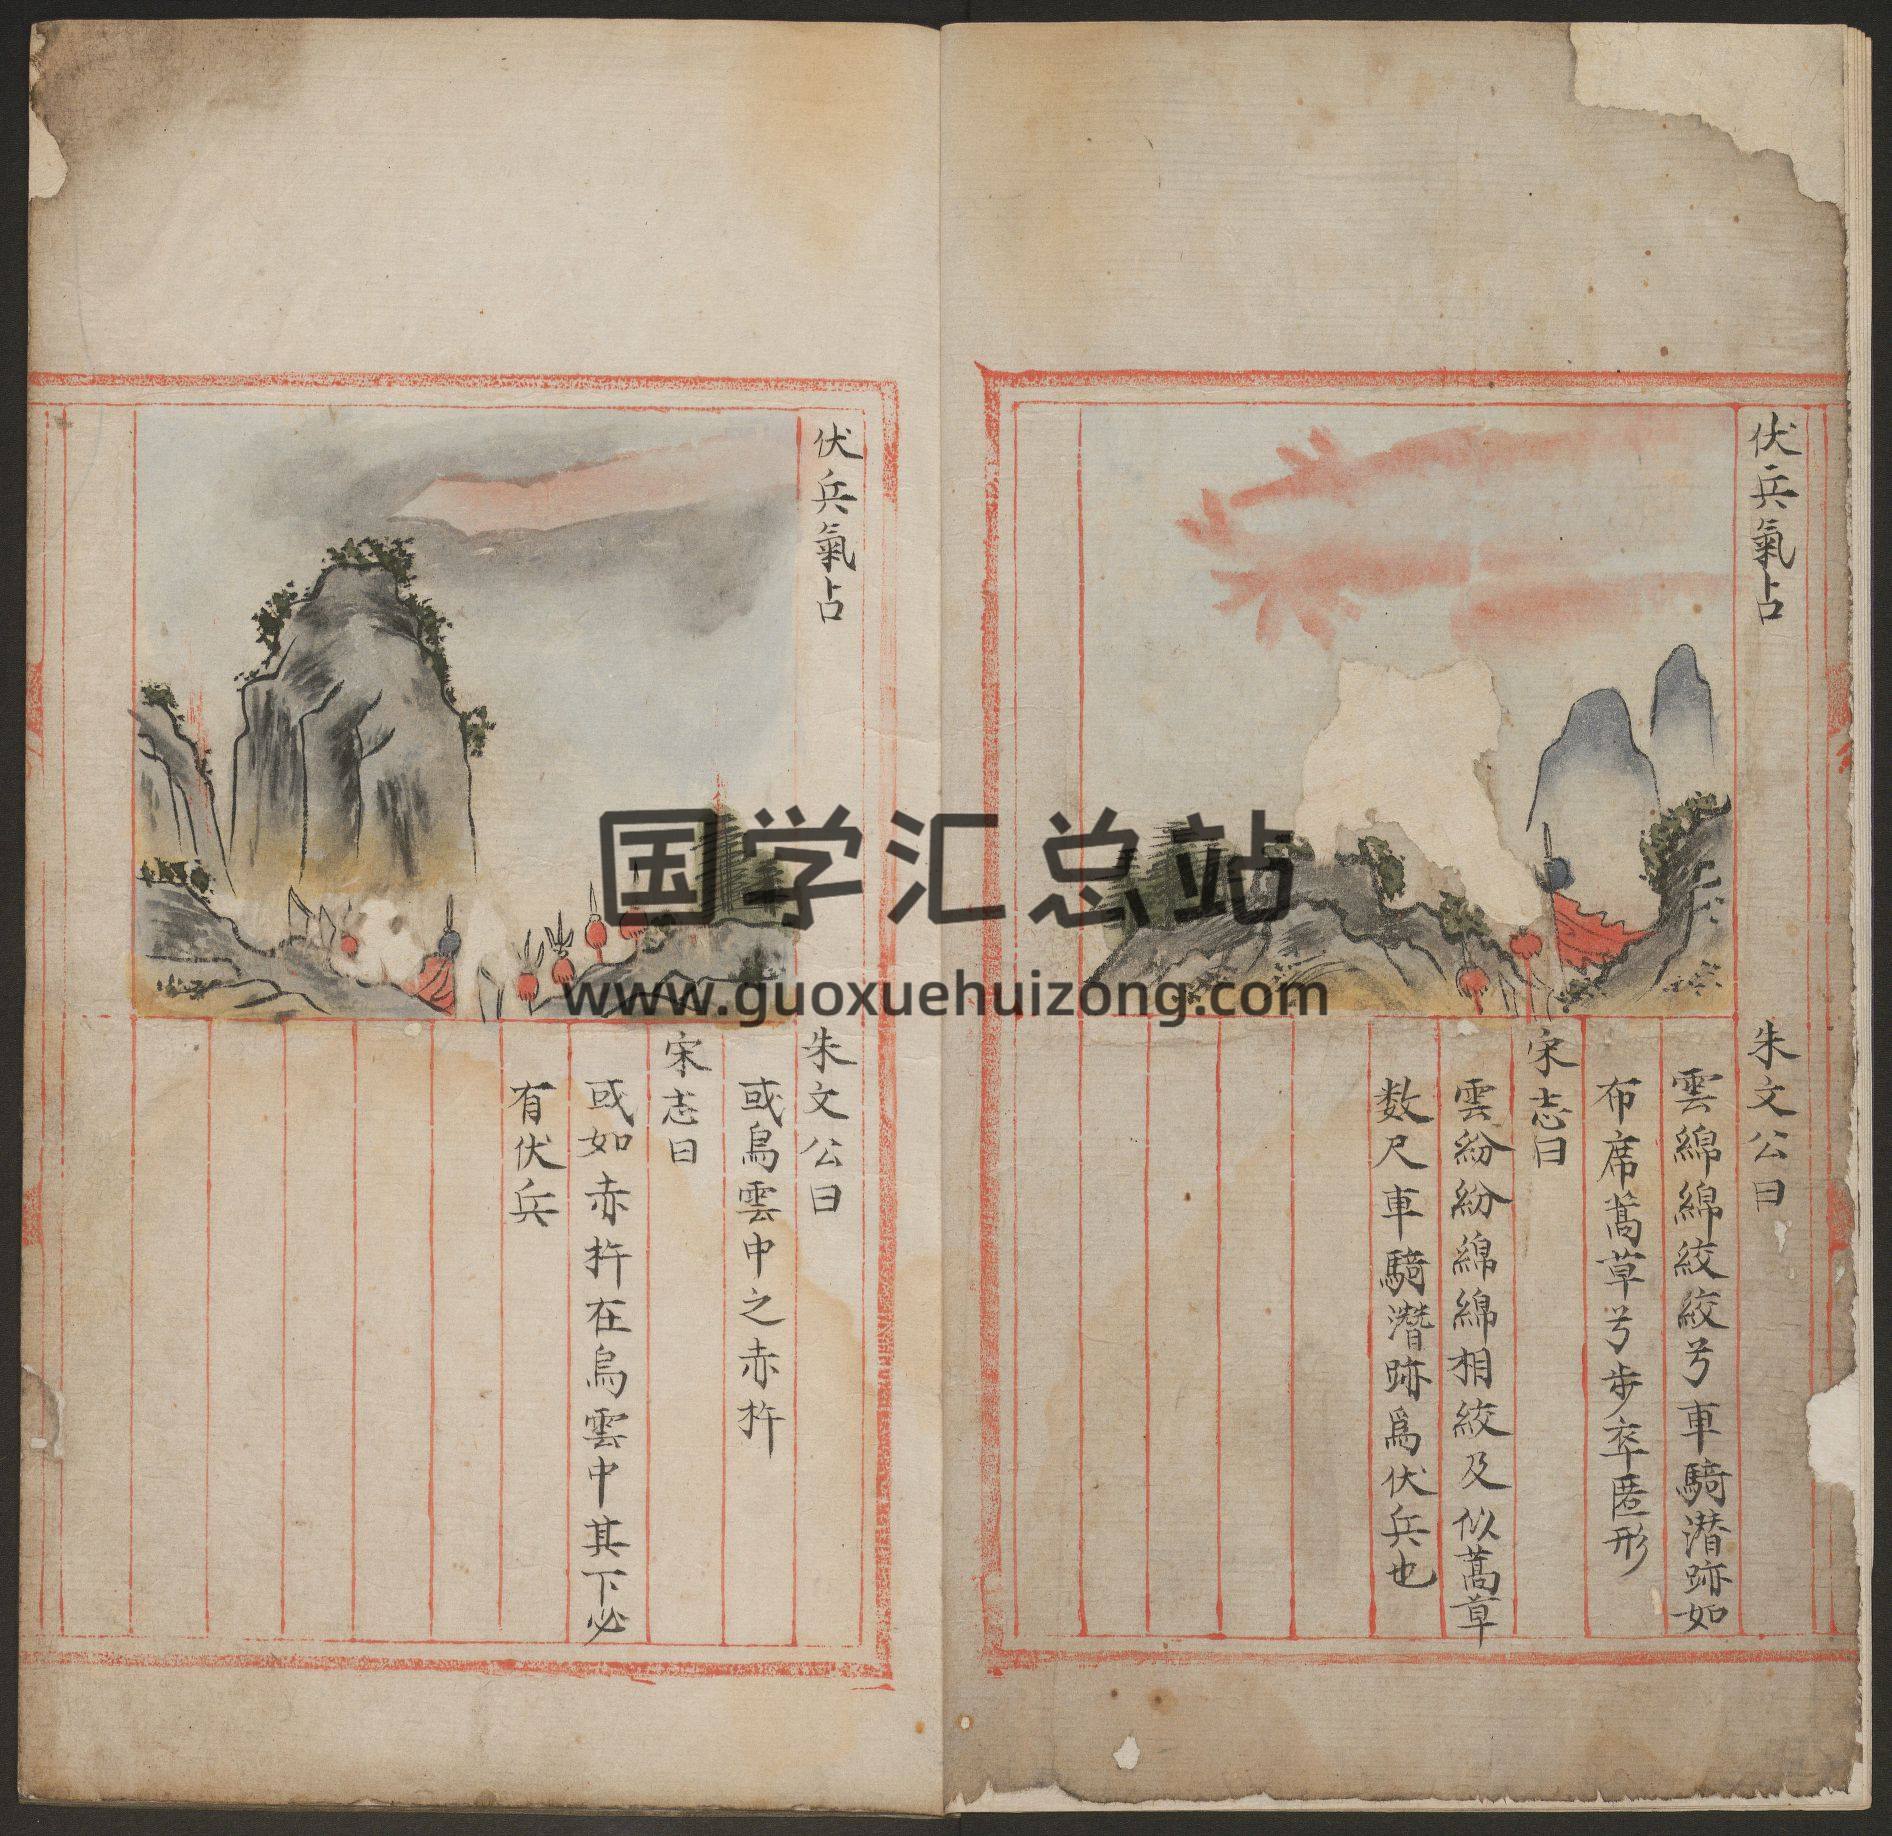 伏兵氣占
朱文公曰
雲綿綿絞絞兮車騎潜跡如
布席蒿草兮步卒匿形
宋志曰
雲紛紛綿綿相絞及似蒿草
数尺車騎潛跡爲伏兵也
伏兵氣占
朱文公曰
或烏雲中之赤杵
宋志曰
或如赤杵在烏雲中其下必
有伏兵
国学汇总站
www.guoxuehuizong.com